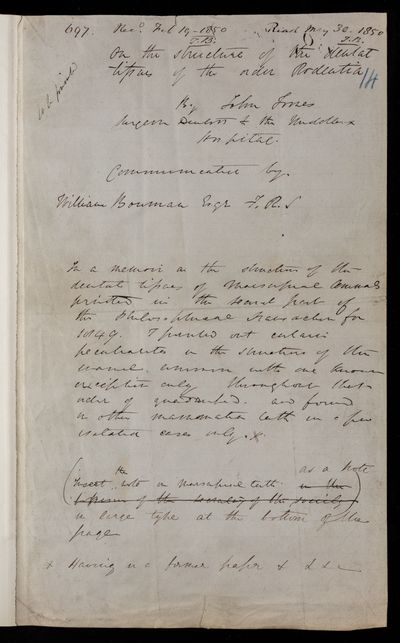 697. Recd. Feb 19 - 1850 Read May 30. 1850
T.B. T.B.
to be printed
On the structure of the dental
tissues of the order Rodentia
By John Tomes
Surgeon Dentist to the Middlesex
Hospital.
Communicated by.
William Bowman Esqr F.R.S
In a memoir on the structure of the
dental tissues of Marsupial animals
printed in the second part of
the Philosophical Transactions for
1849. I pointed out certain
peculiarities in the structure of the
enamel common with one known
exception only throughout that
order of quadrupeds. and found
in other mammalian teeth in a few
isolated cases only. x.
(Insert the note on marsupial teeth as a note
of the society)
in large type at the bottom of the
page
x Having in a former paper &